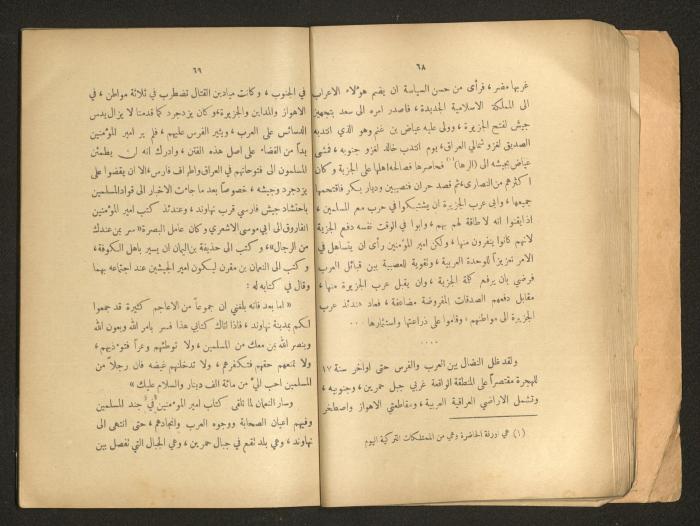 ٦٨
غربها مضر ، فرأى من حسن السياسة ان يضم هؤلاء الاعراب
الى المملكة الاسلامية الجديدة ، فأصدر امره الى سعد بتجهيز
جيش لفتح الجزيرة ، وولى عليه عياض بن غنم وهو الذي انتدبه
الصديق لغزو شمالي العراق ، يوم انتدب خالد لغزو جنوبيه ، فمشى
عياض بجيشه الى (الرها) (١) فحاصرها فصالحه اهلها على الجزية وكان
اكثرهم من النصارى ، ثم قصد حران فنصيبين وديار بكر فافتتحها
جميعها ، وابى عرب الجزيرة ان يشتبكوا في حرب مع المسلمين ،
اذ ايقنوا انه لا طاقة لهم بهم ، وابوا في الوقت نفسه دفع الجزية
لانهم كانوا ينفرون منها ، ولكن امير المؤمنين رأى ان يتساهل في
الامر تعزيزاً للوحدة العربية ، وتقوية للعصبية بين قبائل العرب
فرضي بان يرفع كلمة الجزية ، وان يقبل عرب الجزيرة منها ،
مقابل دفعهم الصدقات المفروضة مضاعفة ، فعاد عندئذ عرب
الجزيرة الى مواطنهم ، وقاموا على زراعتها واستثمارها . . .
. . . .
ولقد ظل النضال بين العرب والفرس حتى اواخر سنة ١٧
للهجرة مقتصراً على المنطقة الواقعة غربي جبل حمرين ، وجنوبيه ،
وتشمل الاراضي العراقية العربية ، ومقاطعتي الاهواز واصطخر
(١) هي اورفة الحاضرة وهي من الممتلكات التركية اليوم
٦٩
في الجنوب ، وكانت ميادين القتال تضطرب في ثلاثة مواطن ، في
الاهواز والمدائن والجزيرة ، وكان يزدجرد كما قدمنا لا يزال يدس
الدسائس على العرب ، ويثير الفرس عليهم ، فلم ير امير المؤمنين
بداً من القضاء على اصل هذه الفتن ، وادرك انه لن يطمئن
المسلمون الى فتوحاتهم في العراق واطراف فارس ، الا ان يقضوا على
يزدجرد وجيشه ، خصوصاً بعد ما جاءت الاخبار الى قواد المسلمين
باحتشاد جيش فارسي قرب نهاوند ، وعندئذ كتب امير المؤمنين
الفاروق الى ابي موسى الاشعري وكان عامل البصرة « سر بمن عندك
من الرجال » ، وكتب الى حذيفة بن اليمان ان يسير باهل الكوفة ،
وكتب الى النعمان بن مقرن ليكون امير الجيشين عند اجتماعه بهما
وقال في كتابه له :
« اما بعد فانه بلغني ان جموعاً من الاعاجم كثيرة قد جمعوا
لكم بمدينة نهاوند ، فاذا اتاك كتابي هذا فسر بامر الله وبعون الله
وبنصر الله بمن معك من المسلمين ، ولا توطئهم وعراً فتؤذيهم ،
ولا تمنعهم حقهم فتكفرهم ، ولا تدخلنهم غيضه فان رجلاً من
المسلمين احب اليّ من مائة الف دينار والسلام عليك »
وسار النعمان لما تلقى كتاب امير المؤمنين في جند المسلمين
وفيهم اعيان الصحابة ووجوه العرب وانجادهم ، حتى انتهى الى
نهاوند ، وهي بلد تقع في جبال حمرين ، وهي الجبال التي تفصل بين